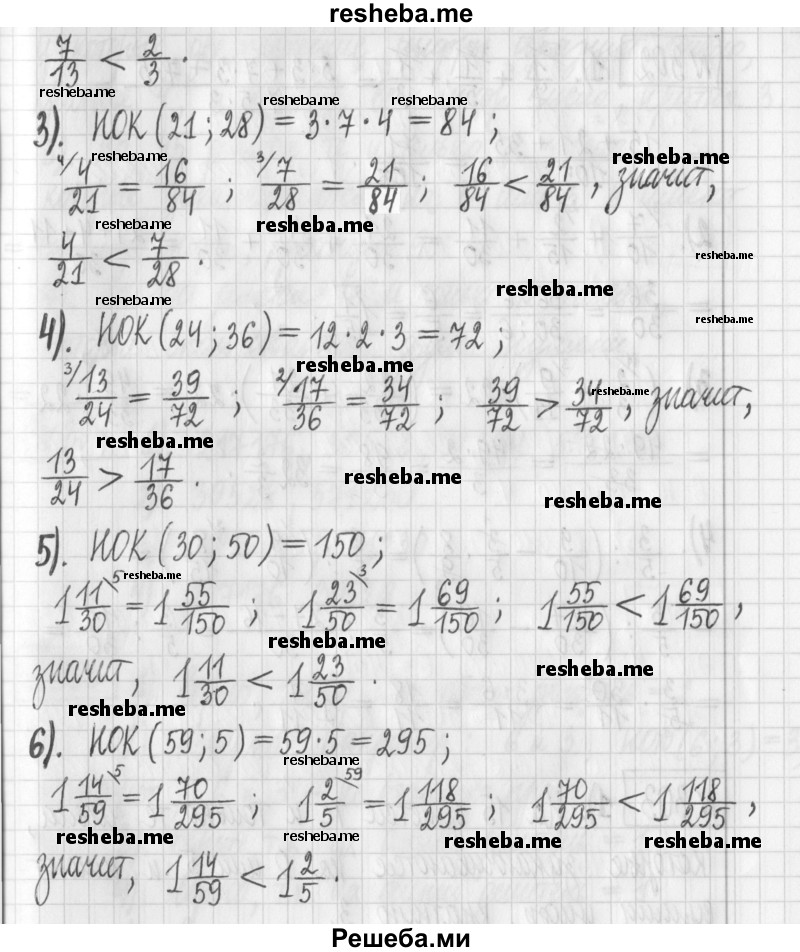 resheba.me
7/13 < 2/3 .
resheba.me resheba.me resheba.me
3). НОК (21 ; 28) = 3·7·4 = 84 ;
resheba.me resheba.me resheba.me
4/ 4/21 = 16/84 ; 3/ 7/28 = 21/84 ; 16/84 < 21/84 , значит,
resheba.me resheba.me
4/21 < 7/28 .
resheba.me
resheba.me resheba.me
4). НОК (24 ; 36) = 12·2·3 = 72 ;
resheba.me
resheba.me
3/ 13/24 = 39/72 ; 2/ 17/36 = 34/72 ; 39/72 > 34/72 , значит,
resheba.me
resheba.me
13/24 > 17/36 .
resheba.me
resheba.me
5). НОК (30 ; 50) = 150 ;
resheba.me
1 11/30 \5 = 1 55/150 ; 1 23/50 \3 = 1 69/150 ; 1 55/150 < 1 69/150 ,
resheba.me
значит, 1 11/30 < 1 23/50 .
resheba.me
resheba.me
6). НОК (59 ; 5) = 59·5 = 295 ;
resheba.me
1 14/59 \5 = 1 70/295 ; 1 2/5 \59 = 1 118/295 ; 1 70/295 < 1 118/295 ,
resheba.me resheba.me resheba.me resheba.me
значит, 1 14/59 < 1 2/5 .
Решеба.ми